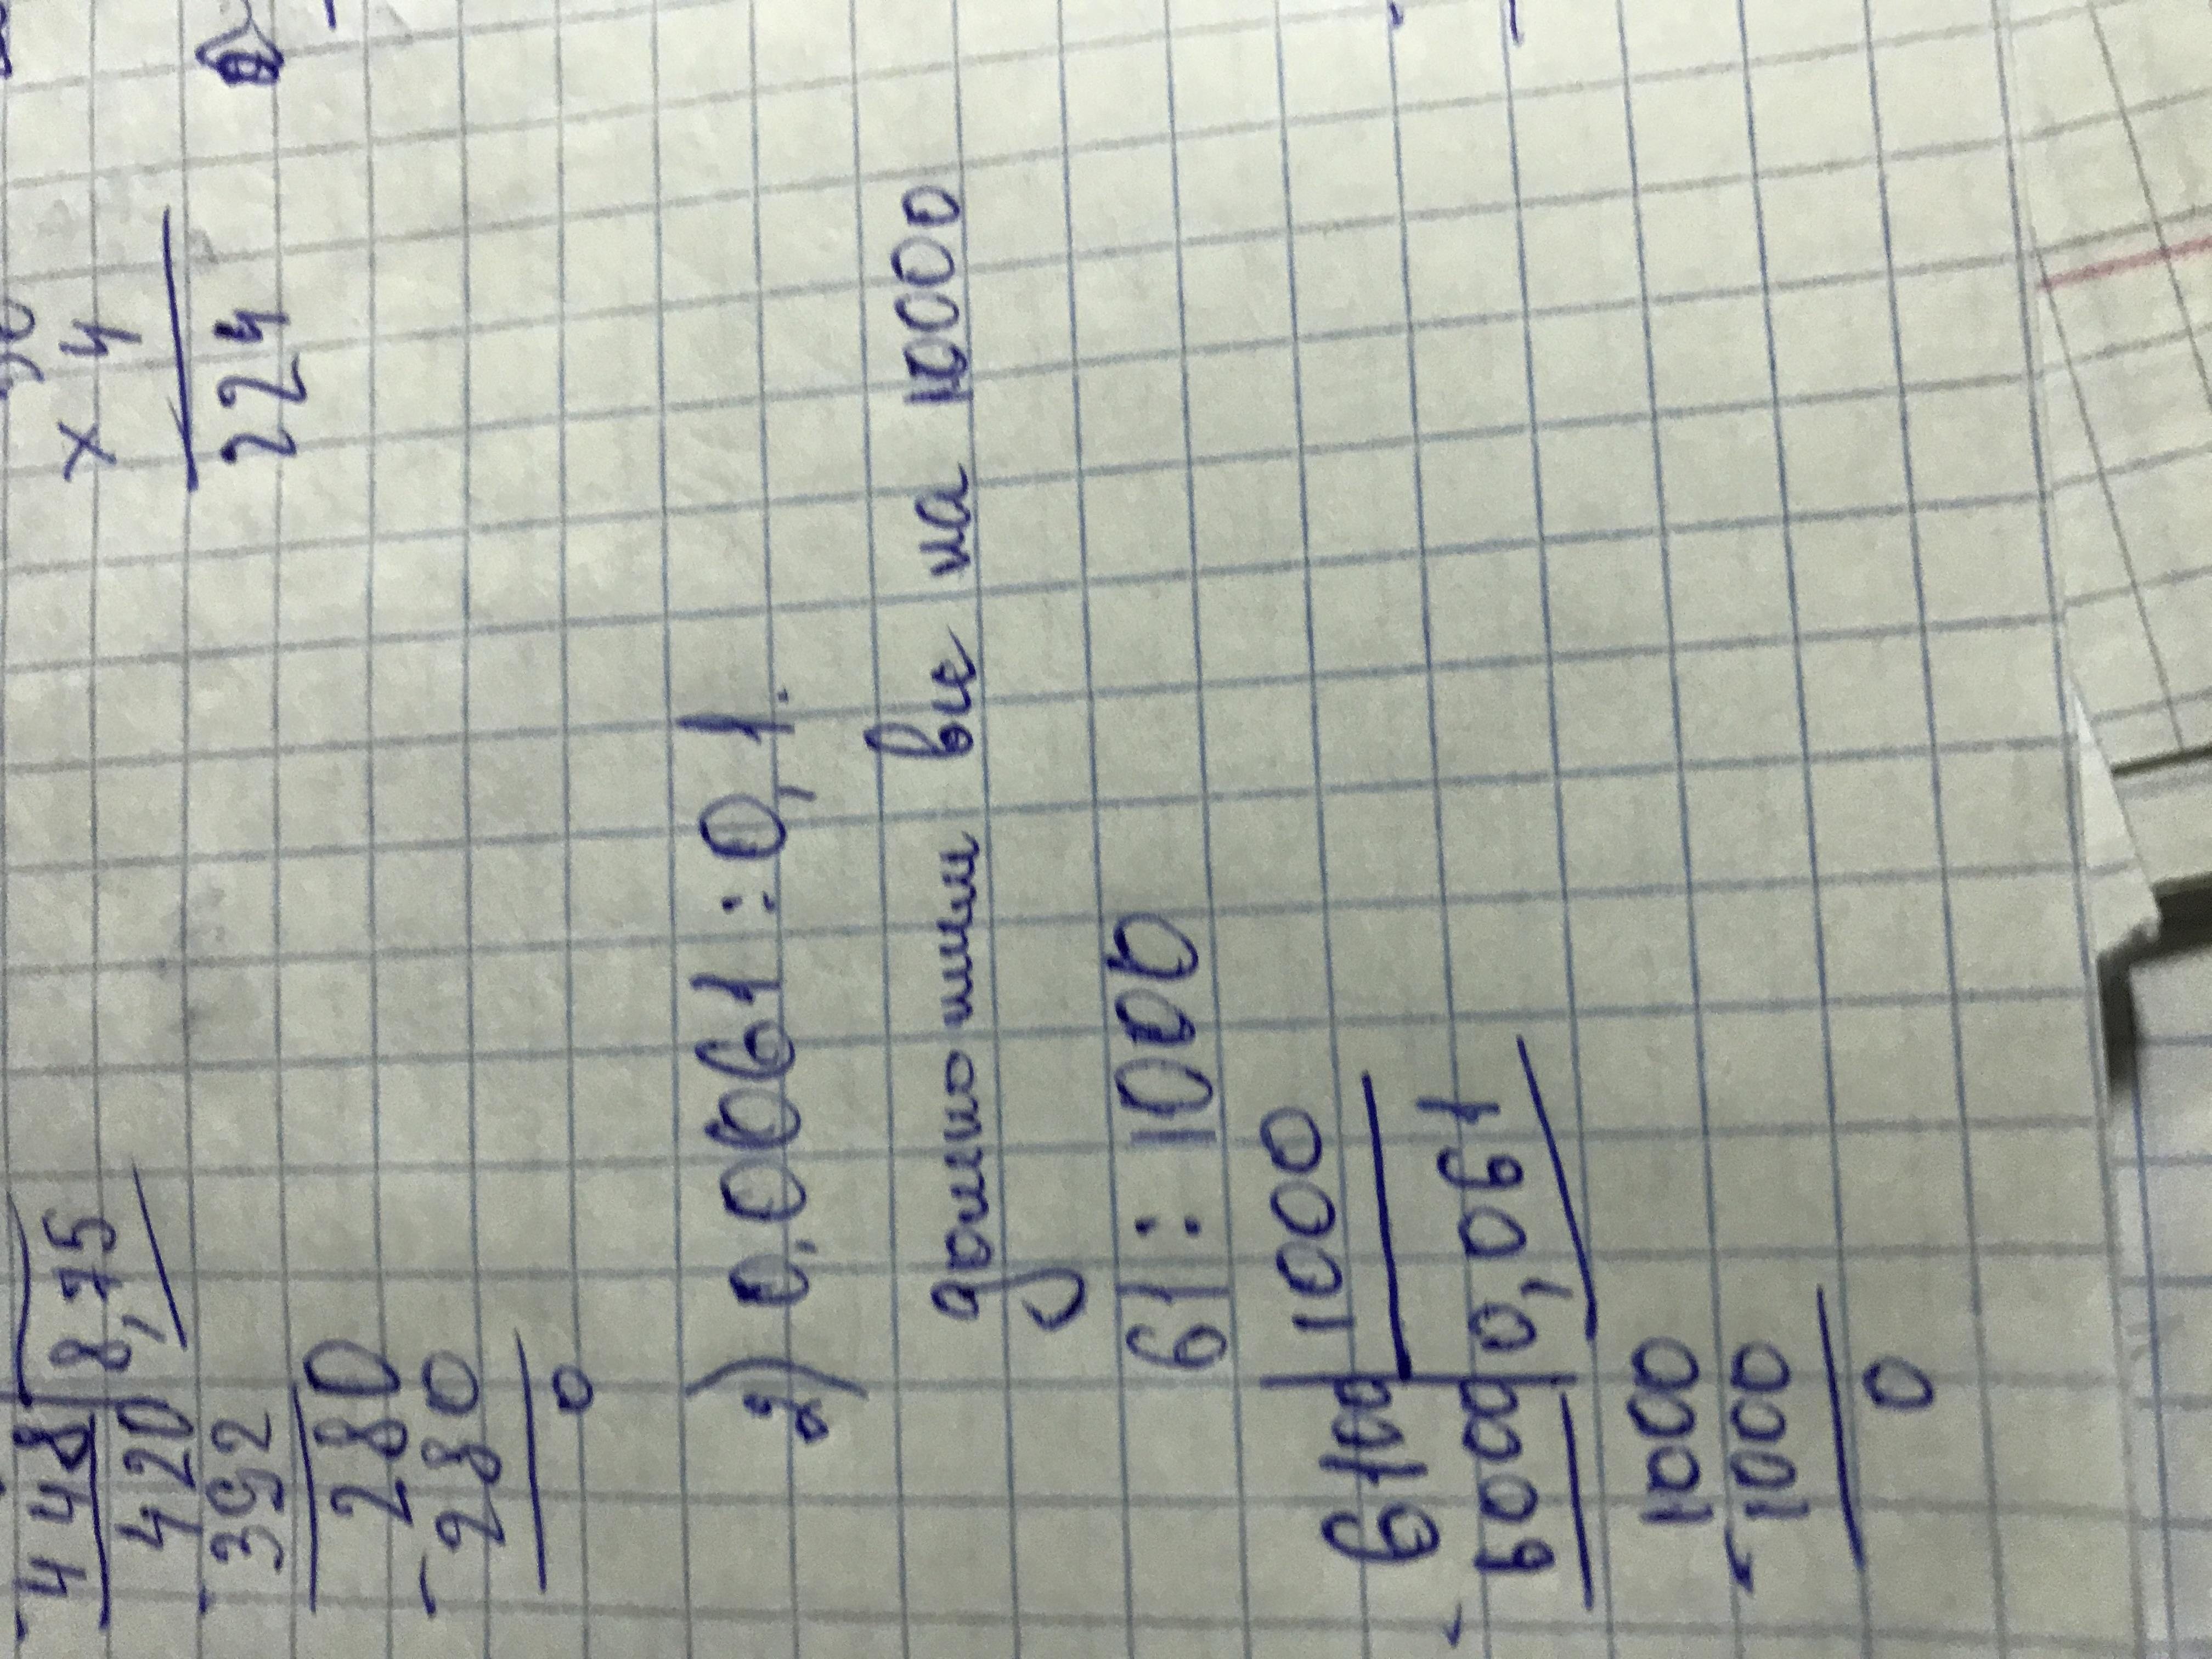 448 | 8,75
420
- 392
280
- 280
0
× 4
224
2) 0,0061 : 0,1.
домножим все на 10000
61 : 1000
6100 | 1000
- 6000 | 0,061
1000
- 1000
0